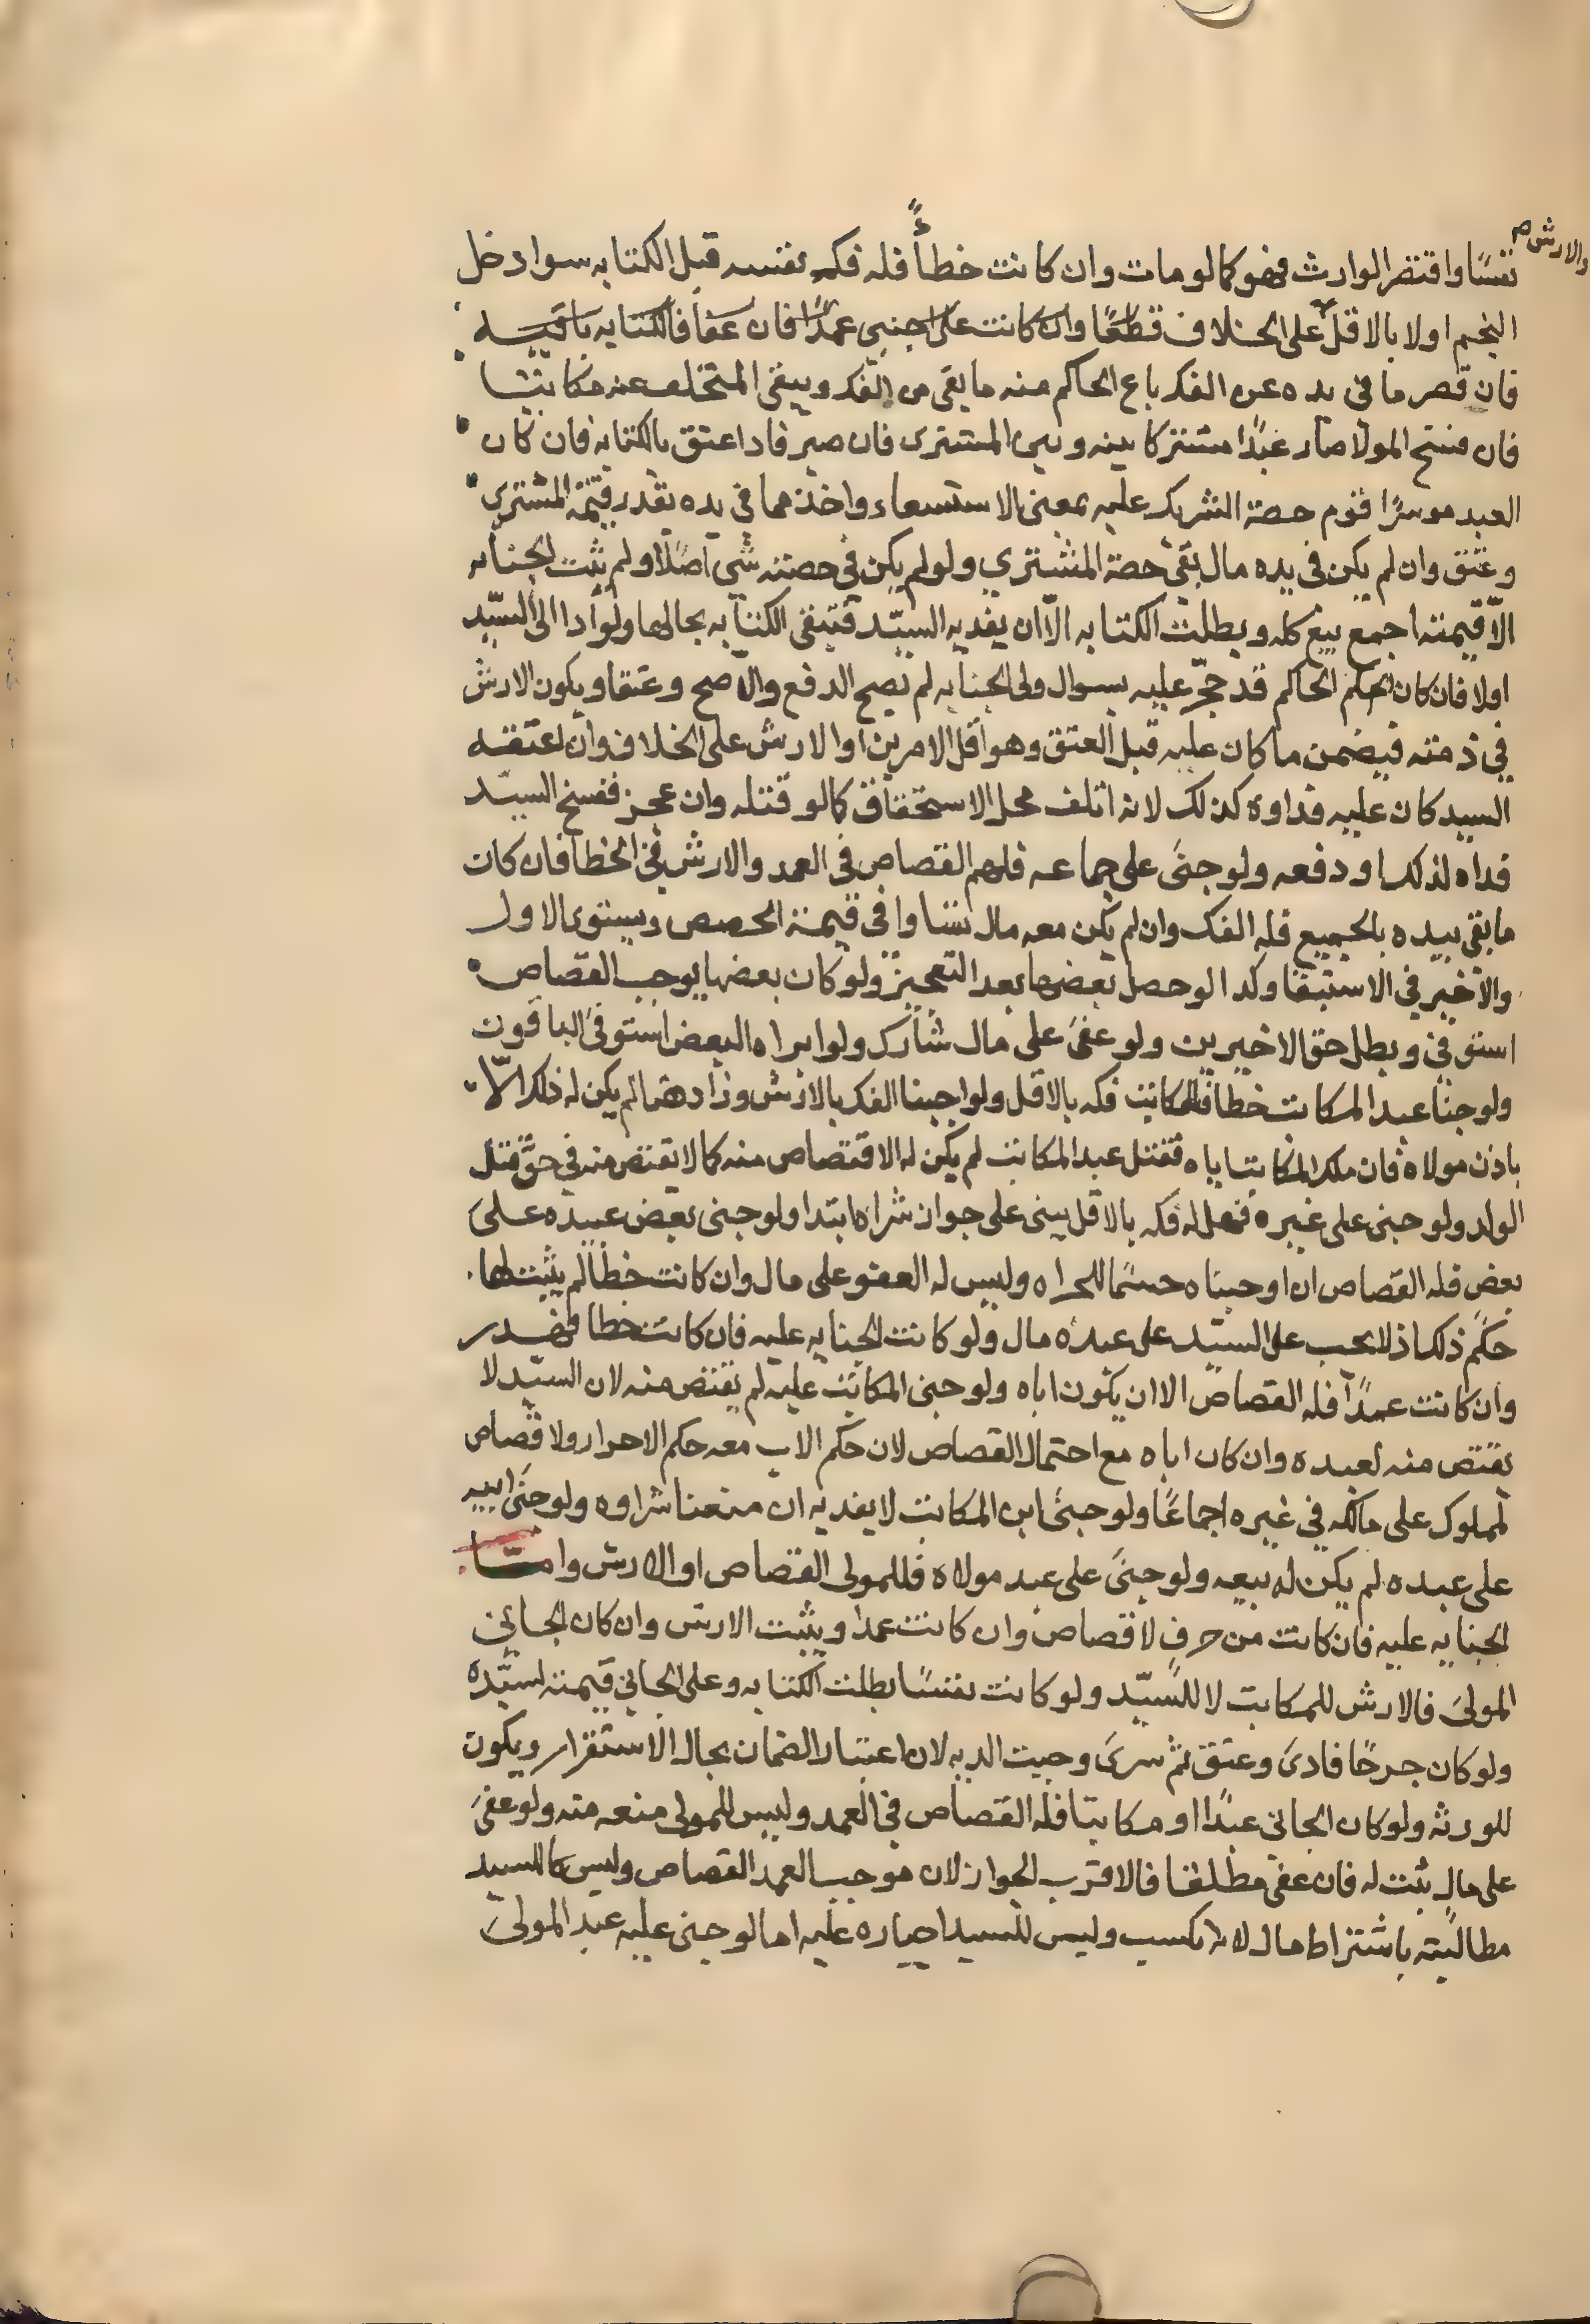 والارش م
نفسًا واقتص الوارث فهو كما لو مات وان كانت خطأً فله فكه نفسه قبل الكتابه سوا دخل
النجم اولا بالاقل على الخلاف قطعًا وان كانت على اجنبى عمدًا فان عفا فالكتابه باقيه
فان قصر ما فى يده عن الفك باع الحاكم منه ما بقى من الفك ويبقى المتخلف عنه مكاتبا
فان فسخ المولا صار عبدًا مشتركا بينه وبين المشترى فان صبر فادا عتق بالكتابه فان كان
العبد موسرًا قوم حصة الشريك عليه بمعنى الاستسعاء واخذ مما فى يده بقدر قيمة المشترى
وعتق وان لم يكن فى يده مال بقى حصة المشتري ولو لم يكن في حصته شى اصلًا ولم يثبت الجنايه
الّا قيمته اجمع بيع كله وبطلت الكتابه الّا ان يفديه السيّد فتبقى الكتابه بحالها ولو ادا الى السيّد
اولا فان كان الحاكم قد حجّر عليه بسوال ولى الجنايه لم يصح الدفع والا صح وعتقا ويكون الارش
في ذمته فيضمن ما كان عليه قبل العتق وهو اقل الامرين او الارش على الخلاف وان اعتقه
السيد كان عليه فداوه كذلك لانه اتلف محل الاستحقاق كما لو قتله وان عجز ففسخ السيّد
فداه لذلك او دفعه ولو جنىَ على جماعه فلهم القصاص فى العمد والارش فى الخطا فان كان
ما بقى بيده بالجميع فله الفك وان لم يكن معه مال تساوا فى قيمته الحصص ويستوى الاول
والاخير في الاستيفا وكدا لو حصل بعضها بعد التعجيز ولو كان بعضها يوجب القصاص
استوفى وبطل حق الاخيرين ولو عفىَ على مال شارك ولو ابراه البعض استوفىَ الباقون
ولو جنا عبد المكاتب خطا فللمكاتب فكه بالاقل ولو اوجبنا الفك بالارش وزاد هما لم يكن له ذلك الّا
باذن مولاه فان ملك المكاتب اباه فقتل عبد المكاتب لم يكن له الاقتصاص منه كما لا يقتص منه في حق قتل
الولد ولو جنى على غيره فهل له فكه بالاقل يبنى على جواز شراه ابتدا ولو جنى بعض عبيده علىَ
بعض فله القصاص ان اوجبناه حسمًا للجراه وليس له العفو على مال وان كانت خطأ لم يثبت لها
حكم ذلك اذ لا يجب على السيّد على عبده مال ولو كانت الجنايه عليه فان كانت خطا فهدر
وان كانت عمدًا فله القصاص الا ان يكون اباه ولو جنى المكاتب عليه لم يقتص منه لان السيّد لا
يقتص منه لعبده وان كان اباه مع احتمال القصاص لان حكم الاب معه حكم الاحرار ولا قصاص
لمملوك على مالكه في غيره اجماعًا ولو جنىَ ابن المكاتب لا يفديه ان منعنا شراوه ولو جنىَ ابيه
على عبده لم يكن له بيعه ولو جنىَ على عبد مولاه فللمولى القصاص او الارش وامّا
الجنايه عليه فان كانت من حرٍ لا قصاص وان كانت عمدا ويثبت الارش وان كان الجاني
المولىَ فالارش للمكاتب لا للسيّد ولو كانت نفسًا بطلت الكتابه وعلى الجاني قيمته لسيّده
ولو كان جرحًا فادىَ وعتق ثم سرىَ وجبت الديه لان اعتبار الضمان بحال الاستقرار ويكون
للورثه ولو كان الجاني عبدًا او مكاتبا فله القصاص فى العمد وليس للمولى منعه منه ولو عفىَ
على مالٍ ثبت له فان عفى مطلقا فالاقرب الجواز لان موجب العمد القصاص وليس للسيد
مطالبته باشتراط مال لانه تكسب وليس للسيد اجباره عليه اما لو جنى عليه عبد المولىَ